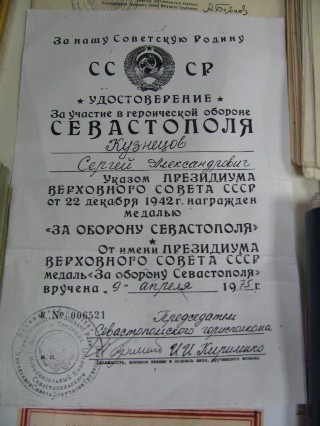 За нашу Советскую Родину
СС СР
УДОСТОВЕРЕНИЕ
За участие в героической обороне
СЕВАСТОПОЛЯ
Кузнецов
Сергей Александрович
Указом ПРЕЗИДИУМА
ВЕРХОВНОГО СОВЕТА СССР
от 22 декабря 1942 г. награжден
медалью
«ЗА ОБОРОНУ СЕВАСТОПОЛЯ»
От имени ПРЕЗИДИУМА
ВЕРХОВНОГО СОВЕТА СССР
медаль «За оборону Севастополя»
вручена "9" апреля 1975 г.
№ 006521
Председатель
Севастопольского горисполкома
М. П.
И.И. Кириленко